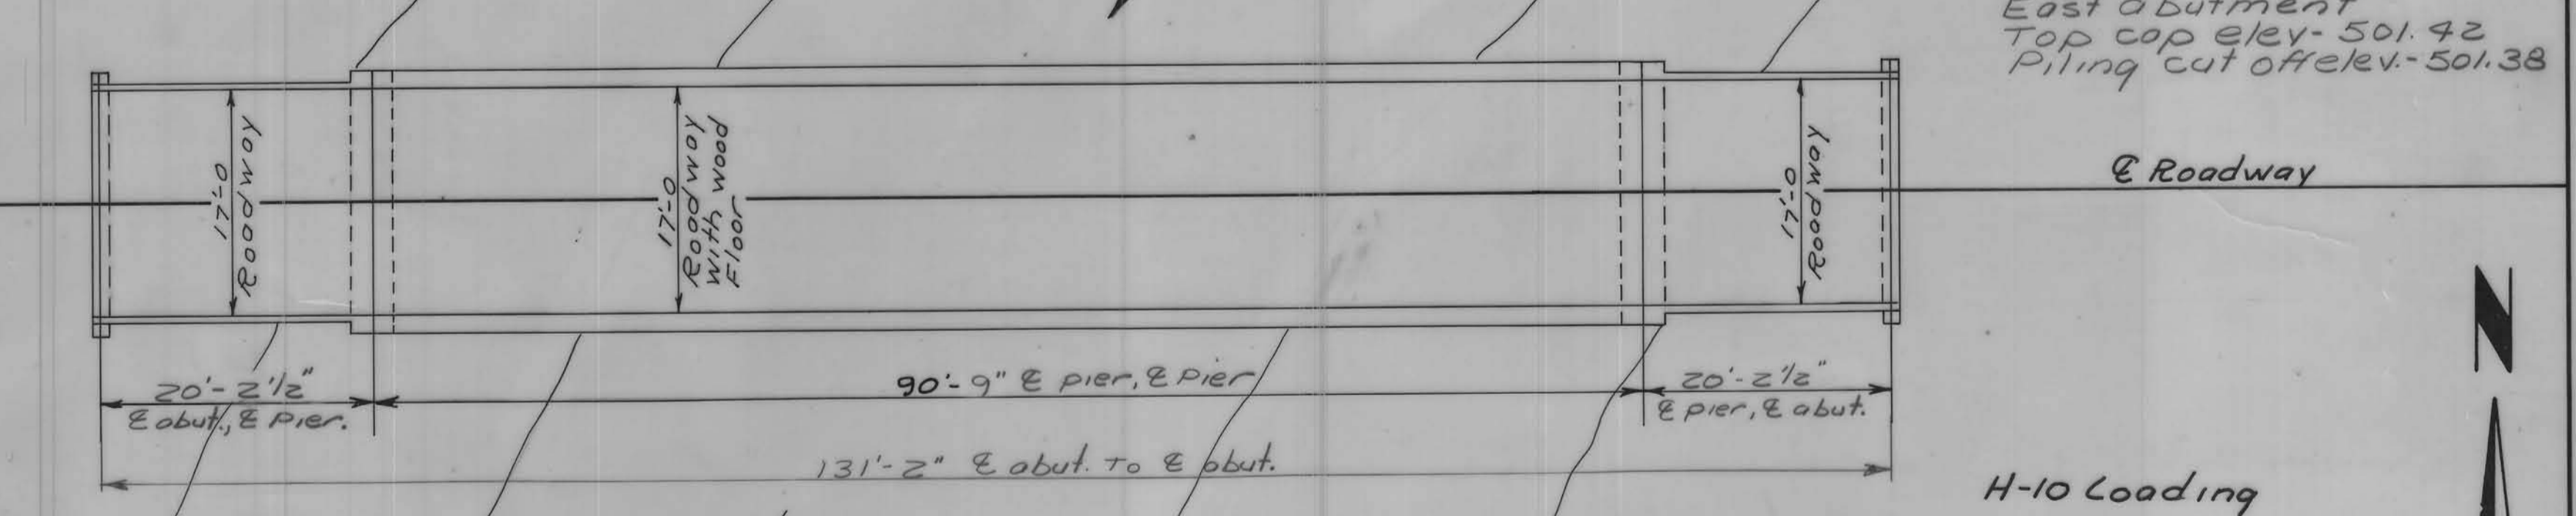 East abutment
Top cap elev- 501.42
Piling cut off elev.- 501.38
17'-0"
Roadway
17'-0"
Roadway
with wood
Floor
17'-0"
Roadway
℄ Roadway
N
20'-2 1/2"
℄ abut., ℄ Pier.
90'-9" ℄ pier, ℄ Pier
20'-2 1/2"
℄ pier, ℄ abut.
131'-2" ℄ abut. To ℄ abut.
H-10 Loading